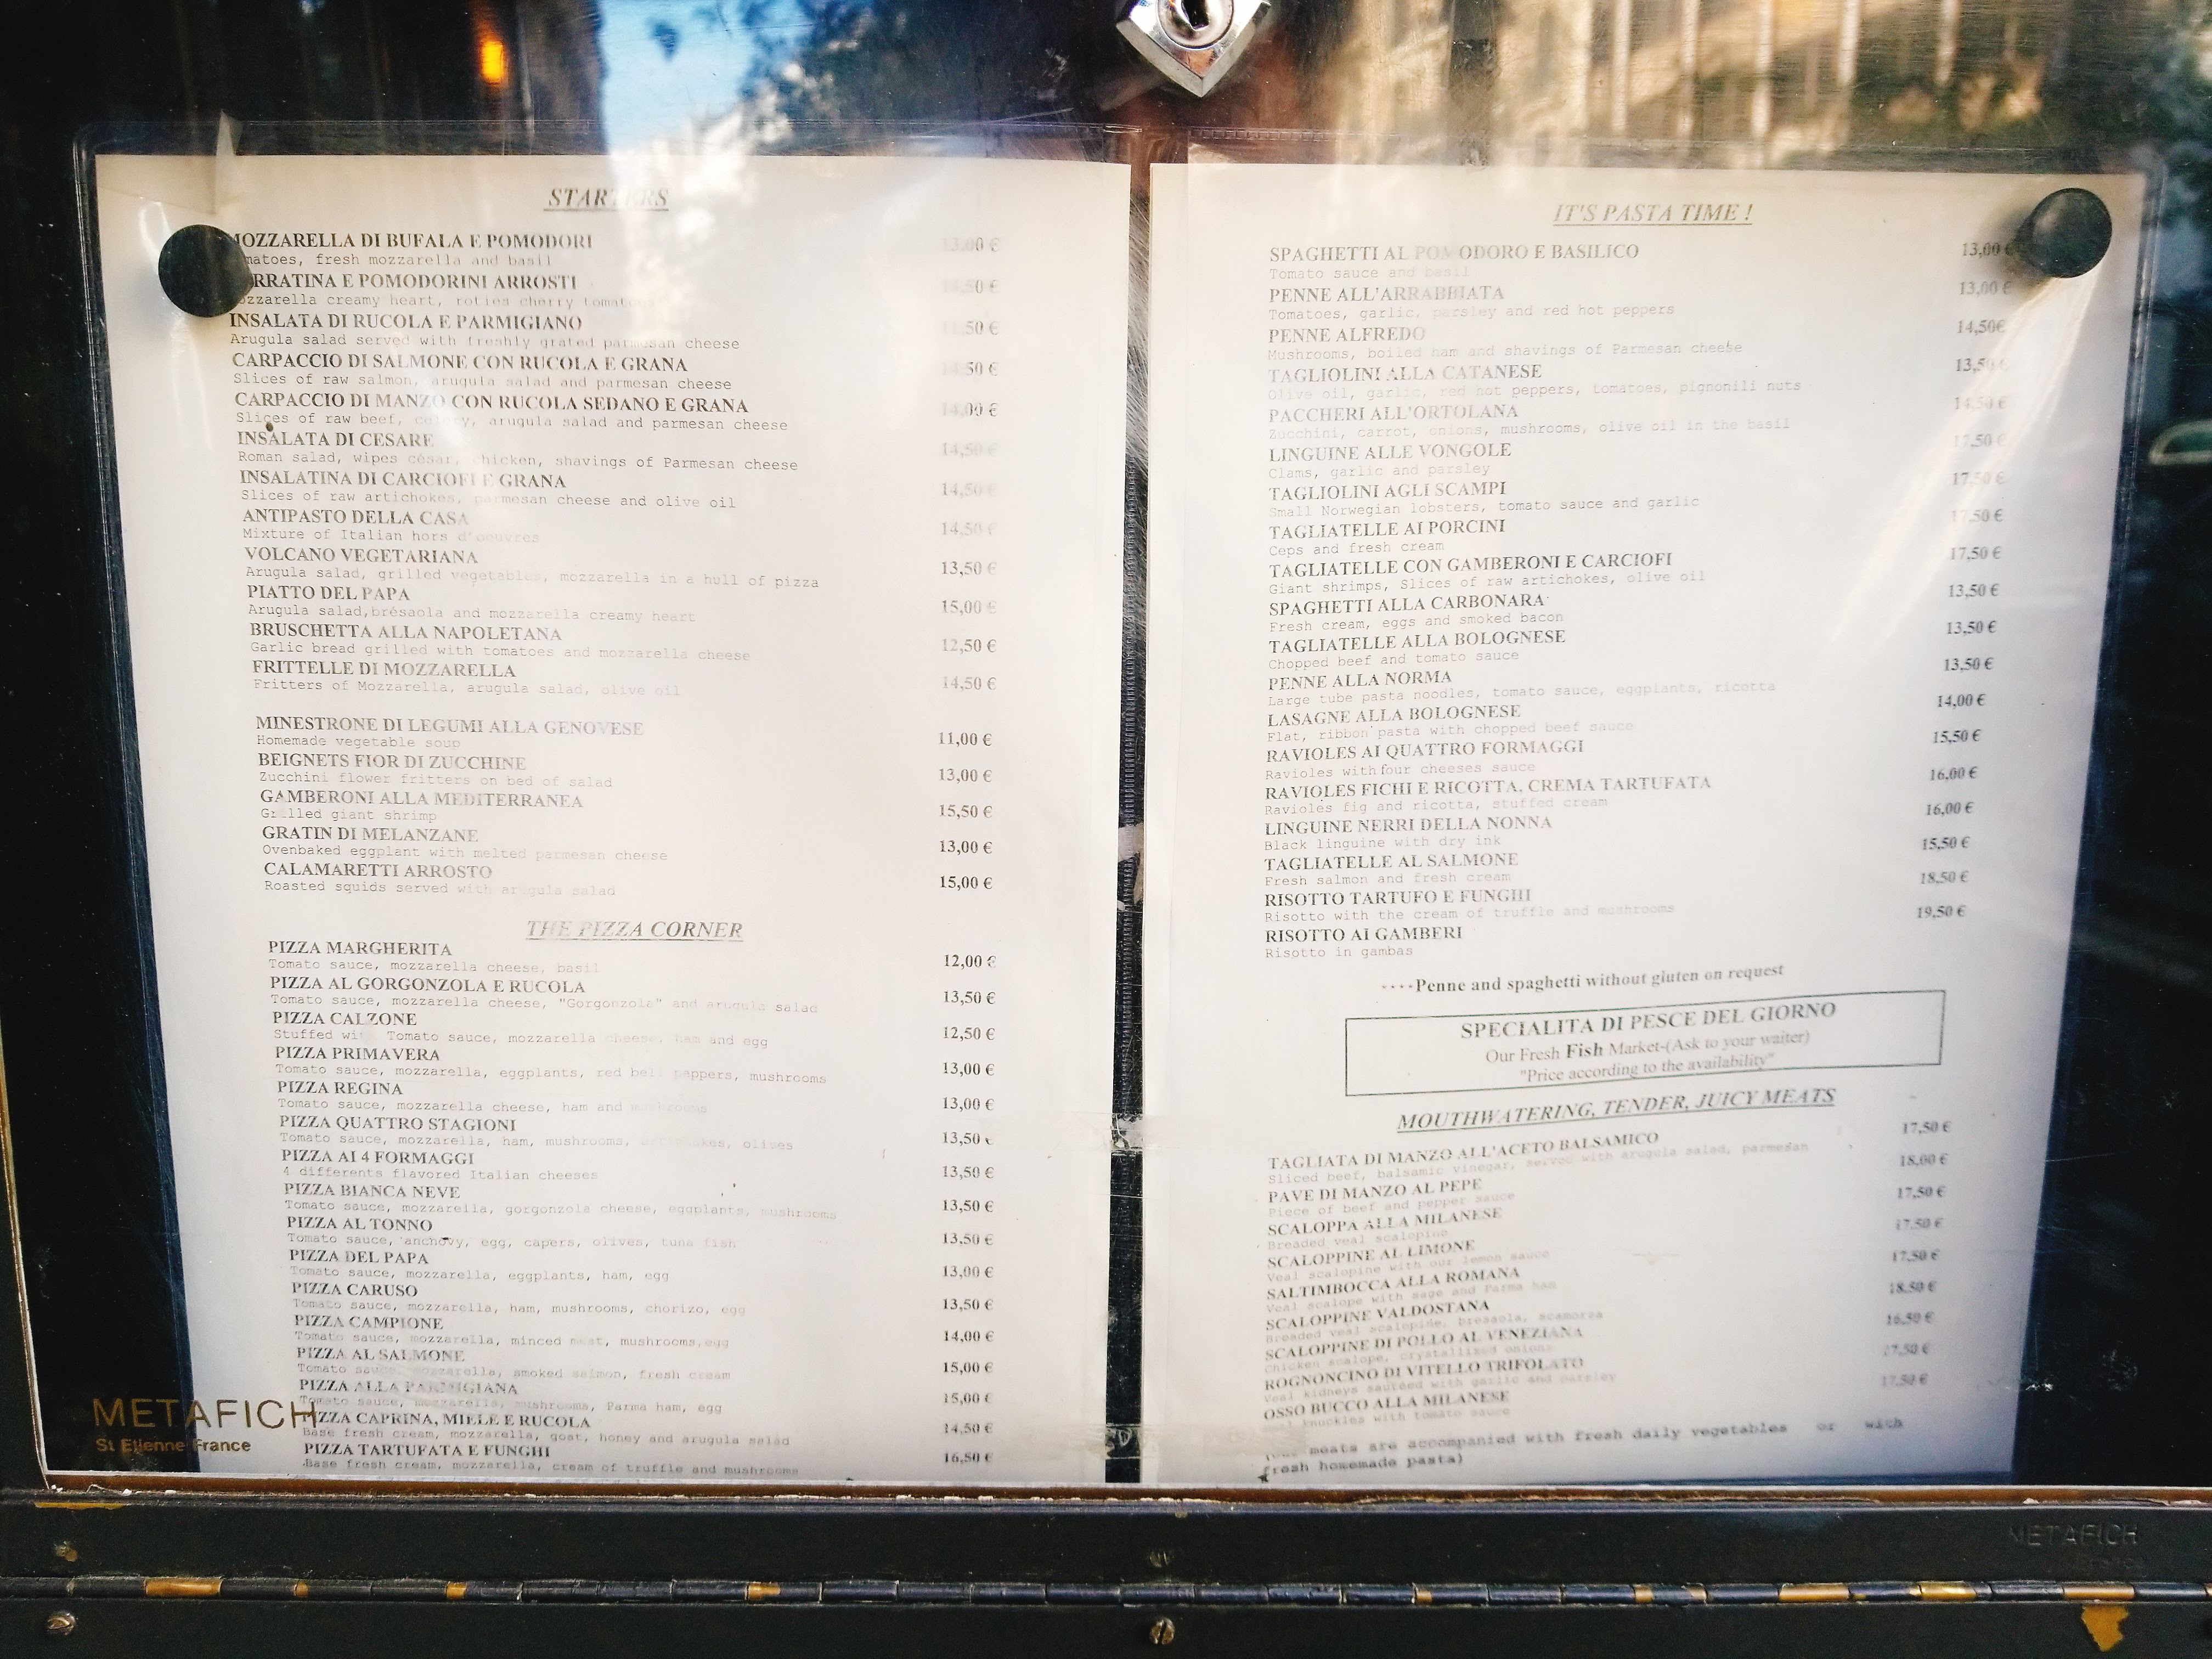 STARTERS
MOZZARELLA DI BUFALA E POMODORI 13,00 €
matoes, fresh mozzarella and basil
RRATINA E POMODORINI ARROSTI
ozzarella creamy heart, roties cherry tomatoes
INSALATA DI RUCOLA E PARMIGIANO
Arugula salad served with freshly grated parmesan cheese
CARPACCIO DI SALMONE CON RUCOLA E GRANA
Slices of raw salmon, arugula salad and parmesan cheese
CARPACCIO DI MANZO CON RUCOLA SEDANO E GRANA 14,00 €
Slices of raw beef, celery, arugula salad and parmesan cheese
INSALATA DI CESARE 14,50 €
Roman salad, wipes césar, chicken, shavings of Parmesan cheese
INSALATINA DI CARCIOFI E GRANA 14,50 €
Slices of raw artichokes, parmesan cheese and olive oil
ANTIPASTO DELLA CASA 14,50 €
Mixture of Italian hors d'oeuvres
VOLCANO VEGETARIANA 13,50 €
Arugula salad, grilled vegetables, mozzarella in a hull of pizza
PIATTO DEL PAPA 15,00 €
Arugula salad,brésaola and mozzarella creamy heart
BRUSCHETTA ALLA NAPOLETANA 12,50 €
Garlic bread grilled with tomatoes and mozzarella cheese
FRITTELLE DI MOZZARELLA 14,50 €
Fritters of Mozzarella, arugula salad, olive oil
MINESTRONE DI LEGUMI ALLA GENOVESE 11,00 €
Homemade vegetable soup
BEIGNETS FIOR DI ZUCCHINE 13,00 €
Zucchini flower fritters on bed of salad
GAMBERONI ALLA MEDITERRANEA 15,50 €
Grilled giant shrimp
GRATIN DI MELANZANE 13,00 €
Ovenbaked eggplant with melted parmesan cheese
CALAMARETTI ARROSTO 15,00 €
Roasted squids served with arugula salad
THE PIZZA CORNER
PIZZA MARGHERITA 12,00 €
Tomato sauce, mozzarella cheese, basil
PIZZA AL GORGONZOLA E RUCOLA 13,50 €
Tomato sauce, mozzarella cheese, "Gorgonzola" and arugula salad
PIZZA CALZONE 12,50 €
Stuffed with Tomato sauce, mozzarella cheese, ham and egg
PIZZA PRIMAVERA 13,00 €
Tomato sauce, mozzarella, eggplants, red bell peppers, mushrooms
PIZZA REGINA 13,00 €
Tomato sauce, mozzarella cheese, ham and mushrooms
PIZZA QUATTRO STAGIONI 13,50 €
Tomato sauce, mozzarella, ham, mushrooms, artichokes, olives
PIZZA AI 4 FORMAGGI 13,50 €
4 differents flavored Italian cheeses
PIZZA BIANCA NEVE 13,50 €
Tomato sauce, mozzarella, gorgonzola cheese, eggplants, mushrooms
PIZZA AL TONNO 13,50 €
Tomato sauce, anchovy, egg, capers, olives, tuna fish
PIZZA DEL PAPA 13,00 €
Tomato sauce, mozzarella, eggplants, ham, egg
PIZZA CARUSO 13,50 €
Tomato sauce, mozzarella, ham, mushrooms, chorizo, egg
PIZZA CAMPIONE 14,00 €
Tomato sauce, mozzarella, minced meat, mushrooms,egg
PIZZA AL SALMONE 15,00 €
Tomato sauce, mozzarella, smoked salmon, fresh cream
PIZZA ALLA PARMIGIANA 15,00 €
Tomato sauce, mozzarella, mushrooms, Parma ham, egg
PIZZA CAPRINA, MIELE E RUCOLA 14,50 €
Base fresh cream, mozzarella, goat, honey and arugula salad
PIZZA TARTUFATA E FUNGHI 16,50 €
Base fresh cream, mozzarella, cream of truffle and mushrooms
IT'S PASTA TIME !
SPAGHETTI AL POMODORO E BASILICO 13,00 €
Tomato sauce and basil
PENNE ALL'ARRABBIATA 13,00 €
Tomatoes, garlic, parsley and red hot peppers
PENNE ALFREDO 14,50€
Mushrooms, boiled ham and shavings of Parmesan cheese
TAGLIOLINI ALLA CATANESE 13,50 €
Olive oil, garlic, red hot peppers, tomatoes, pignonili nuts
PACCHERI ALL'ORTOLANA 14,50 €
Zucchini, carrot, onions, mushrooms, olive oil in the basil
LINGUINE ALLE VONGOLE 17,50 €
Clams, garlic and parsley
TAGLIOLINI AGLI SCAMPI 17,50 €
Small Norwegian lobsters, tomato sauce and garlic
TAGLIATELLE AI PORCINI 17,50 €
Ceps and fresh cream
TAGLIATELLE CON GAMBERONI E CARCIOFI 17,50 €
Giant shrimps, Slices of raw artichokes, olive oil
SPAGHETTI ALLA CARBONARA 13,50 €
Fresh cream, eggs and smoked bacon
TAGLIATELLE ALLA BOLOGNESE 13,50 €
Chopped beef and tomato sauce
PENNE ALLA NORMA 13,50 €
Large tube pasta noodles, tomato sauce, eggplants, ricotta
LASAGNE ALLA BOLOGNESE 14,00 €
Flat, ribbon pasta with chopped beef sauce
RAVIOLES AI QUATTRO FORMAGGI 15,50 €
Ravioles with four cheeses sauce
RAVIOLES FICHI E RICOTTA, CREMA TARTUFATA 16,00 €
Ravioles fig and ricotta, stuffed cream
LINGUINE NERRI DELLA NONNA 16,00 €
Black linguine with dry ink
TAGLIATELLE AL SALMONE 15,50 €
Fresh salmon and fresh cream
RISOTTO TARTUFO E FUNGHI 18,50 €
Risotto with the cream of truffle and mushrooms
RISOTTO AI GAMBERI 19,50 €
Risotto in gambas
----Penne and spaghetti without gluten on request
SPECIALITA DI PESCE DEL GIORNO
Our Fresh Fish Market-(Ask to your waiter)
"Price according to the availability"
MOUTHWATERING, TENDER, JUICY MEATS
TAGLIATA DI MANZO ALL'ACETO BALSAMICO 17,50 €
Sliced beef, balsamic vinegar, served with arugula salad, parmesan
PAVE DI MANZO AL PEPE 18,00 €
Piece of beef and pepper sauce
SCALOPPA ALLA MILANESE 17,50 €
Breaded veal scalopine
SCALOPPINE AL LIMONE 17,50 €
Veal scalopine with our lemon sauce
SALTIMBOCCA ALLA ROMANA 17,50 €
Veal scalope with sage and Parma ham
SCALOPPINE VALDOSTANA 18,50 €
Breaded veal scalopide, bresaola, scamorza
SCALOPPINE DI POLLO AL VENEZIANA 16,50 €
Chicken scalope, crystallised onions
ROGNONCINO DI VITELLO TRIFOLATO 17,50 €
Veal kidneys sautéed with garlic and parsley
OSSO BUCCO ALLA MILANESE 17,50 €
knuckles with tomato sauce
meats are accompanied with fresh daily vegetables or with
fresh homemade pasta)
METAFICH
St Etienne France
METAFICH